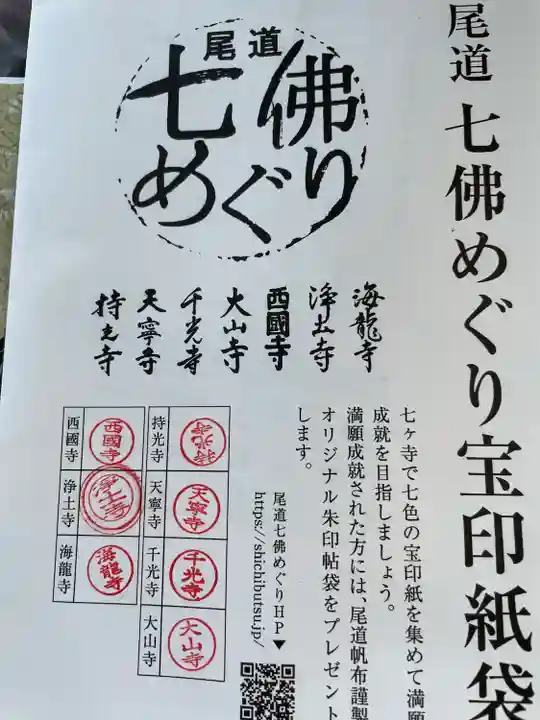 尾道 七佛めぐり宝印紙袋
尾道
七佛
めぐり
海龍寺
浄土寺
西國寺
大山寺
千光寺
天寧寺
持光寺
七ヶ寺で七色の宝印紙を集めて満願
成就を目指しましょう。
満願成就された方には、尾道帆布謹製
オリジナル朱印帖袋をプレゼント
します。
尾道七佛めぐりHP▼
https://shichibutsu.jp/
持光寺
持光寺
天寧寺
天寧寺
千光寺
千光寺
大山寺
大山寺
西國寺
西國寺
浄土寺
浄土寺
海龍寺
海龍寺